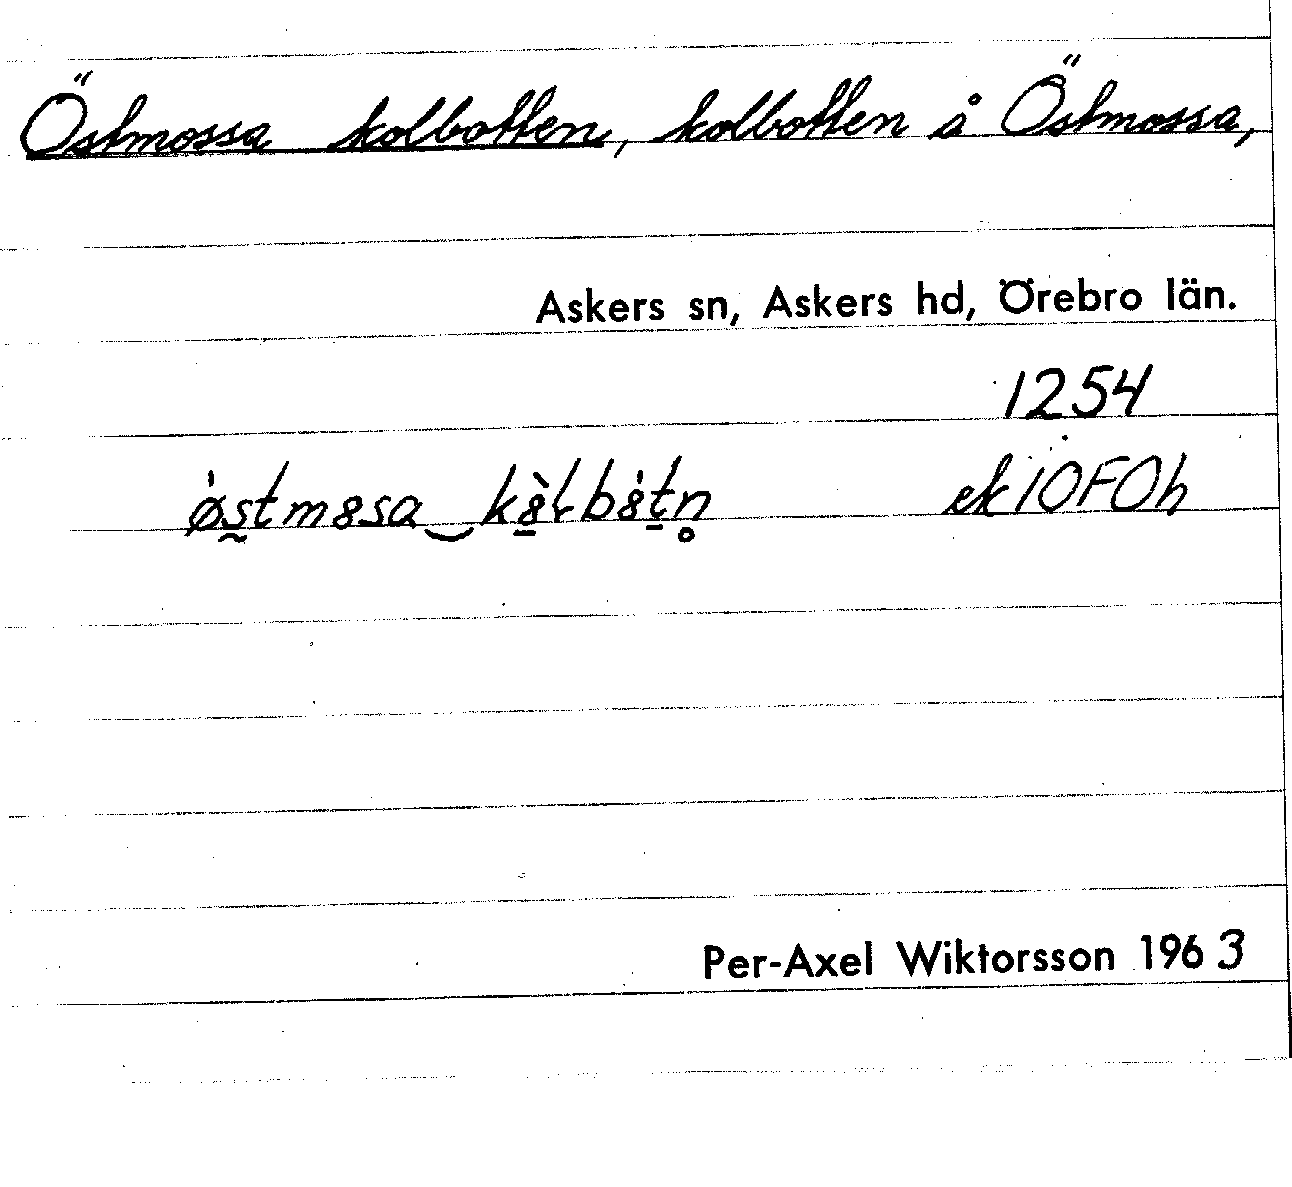 Östmossa kolbotten, kolbotten å Östmossa,
Askers sn, Askers hd, Örebro län.
1254
ø̀s̰tm8sa‿k8̠̀ɫb8̀t̠n̥ ek 10F0h
Per-Axel Wiktorsson 1963